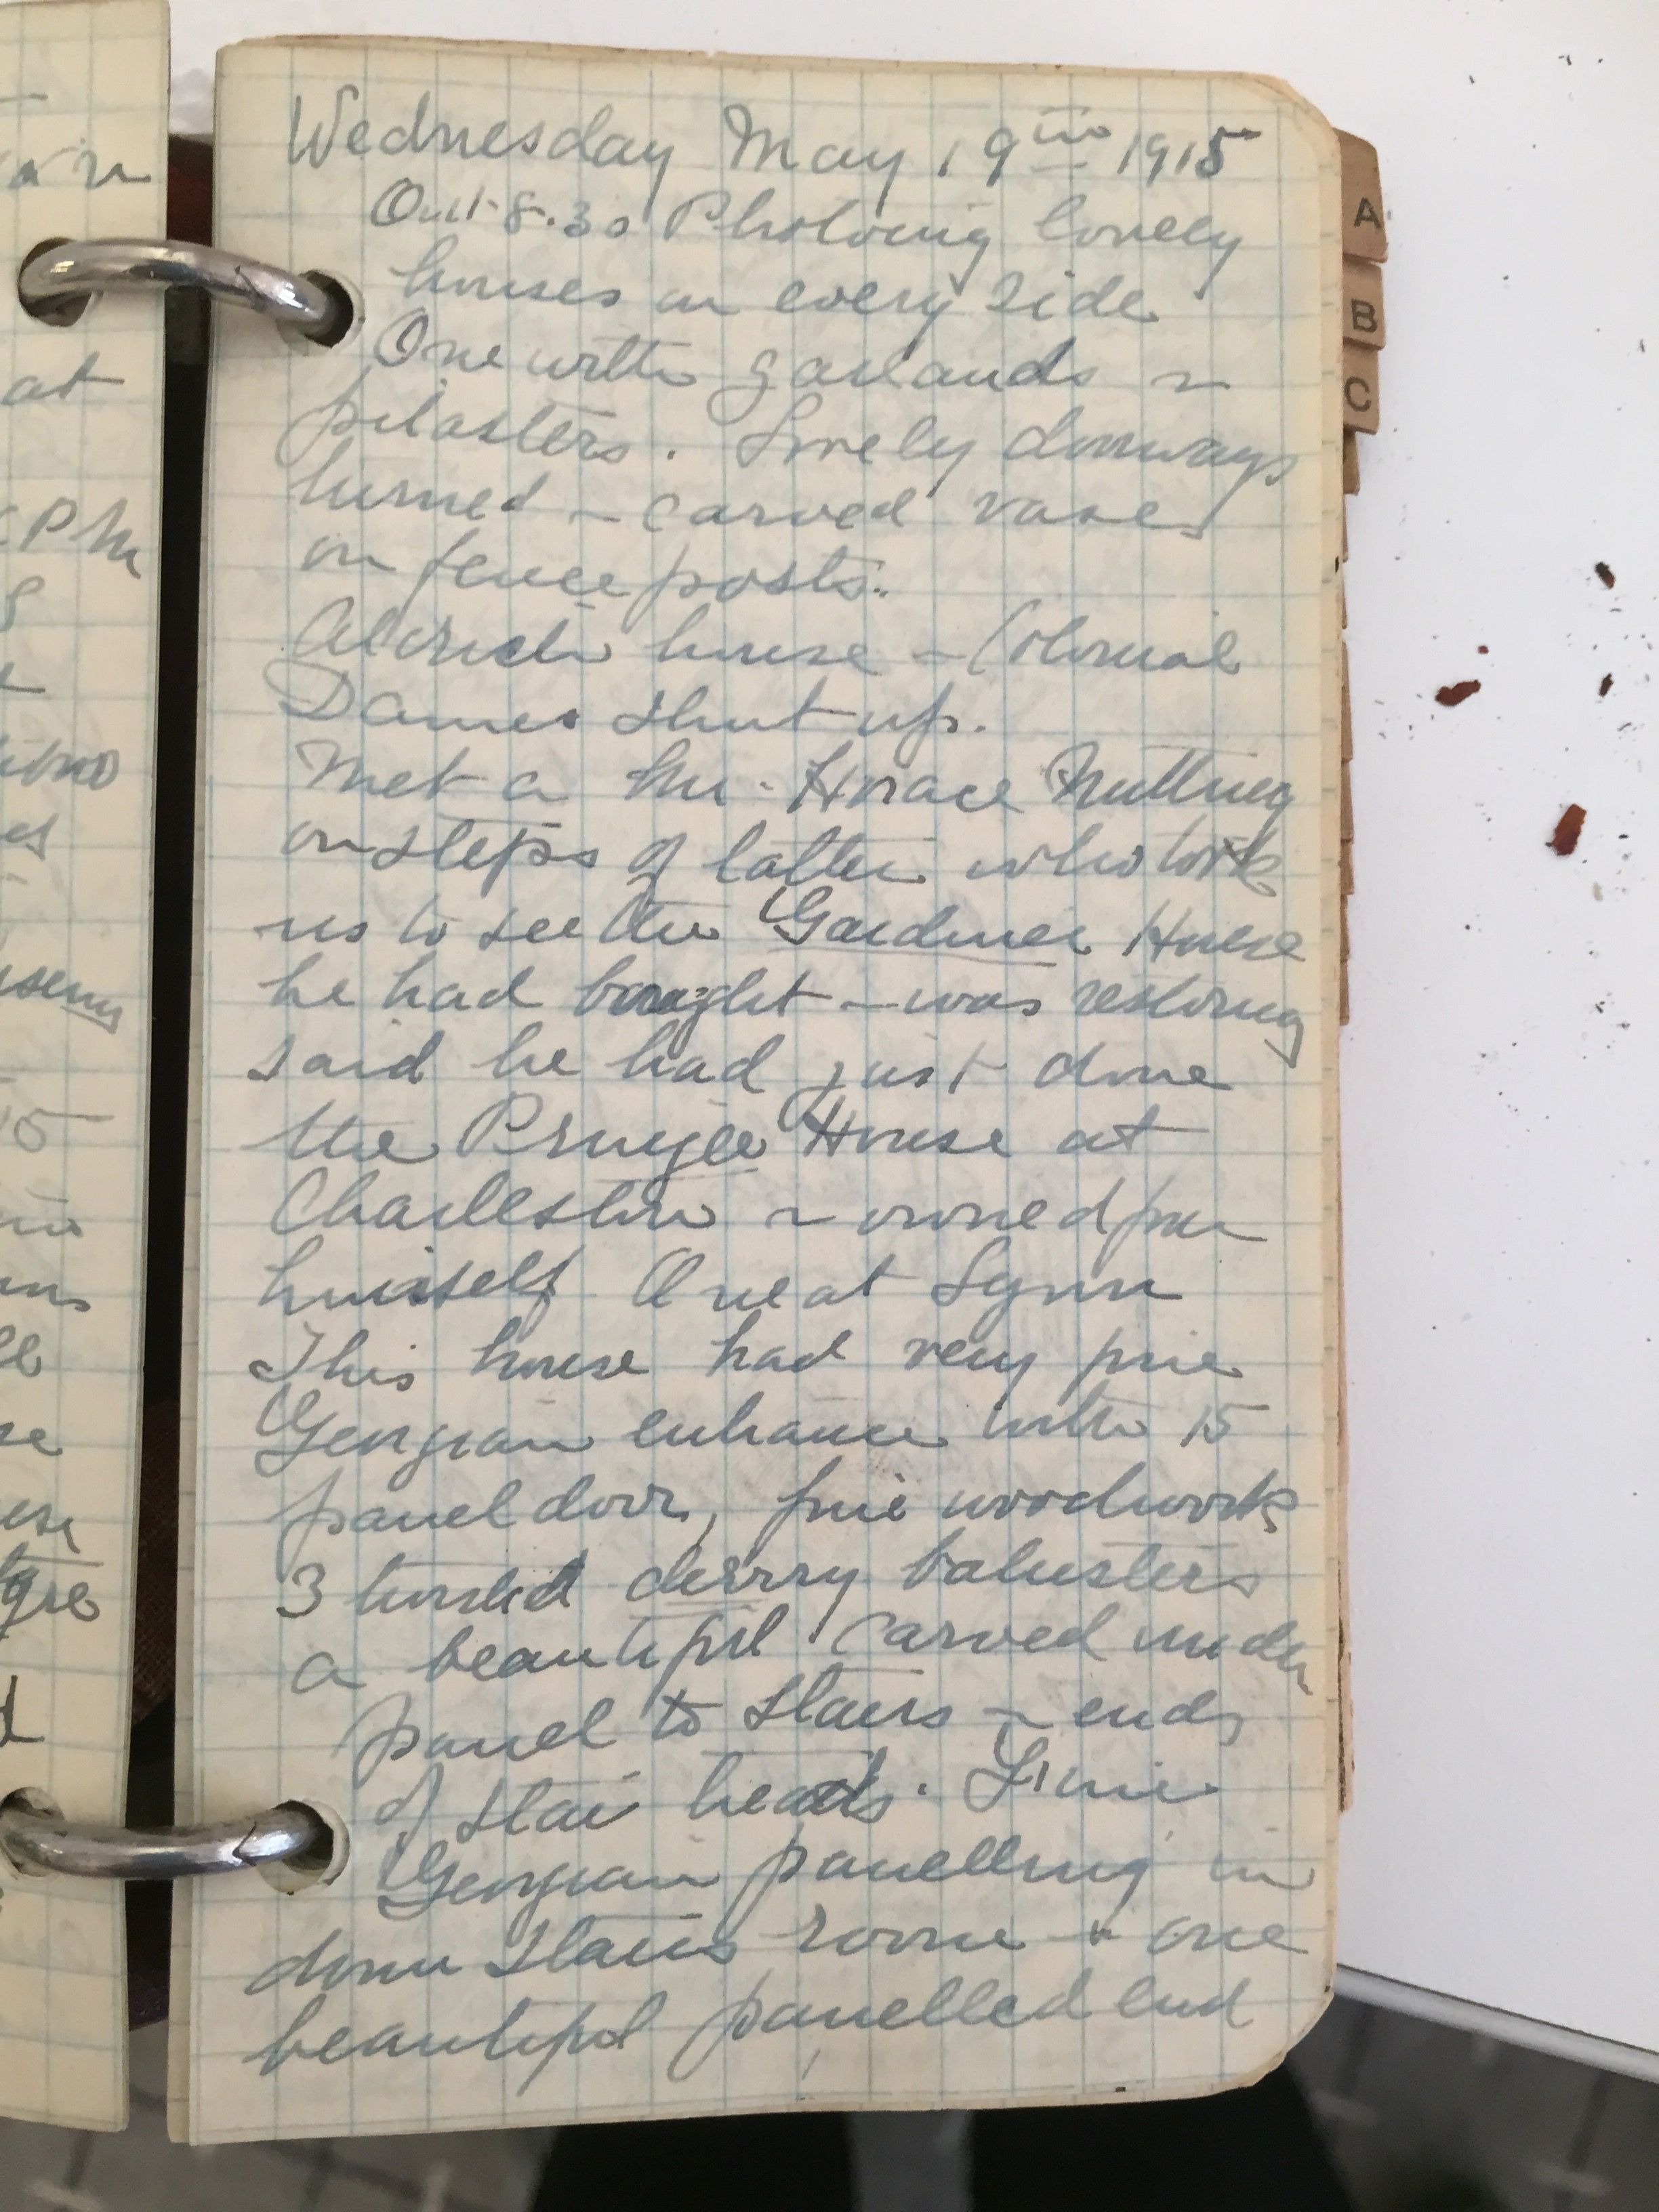 Wednesday May 19th 1915
Out 8.30 Photoing lovely
houses on every side
One with garlands ~
pilasters. Lovely doorways
turned ~ carved vases
on fence posts.
Aldrich house ~ Colonial
Dames shut up.
Met a Mr. Horace Nutting
on steps of latter who took
us to see the Gardiner House
he had bought ~ was restoring
said he had just done
the Pringle House at
Charleston ~ owned
himself One at Lynn
This house had very fine
Georgian entrance with 15
panel door, fine woodwork
3 twisted cherry balusters
a beautiful carved under
panel to stairs ~ ends
of stair heads. Fine
Georgian panelling in
down stairs room & one
beautiful panelled end
A
B
C
at
PM
15